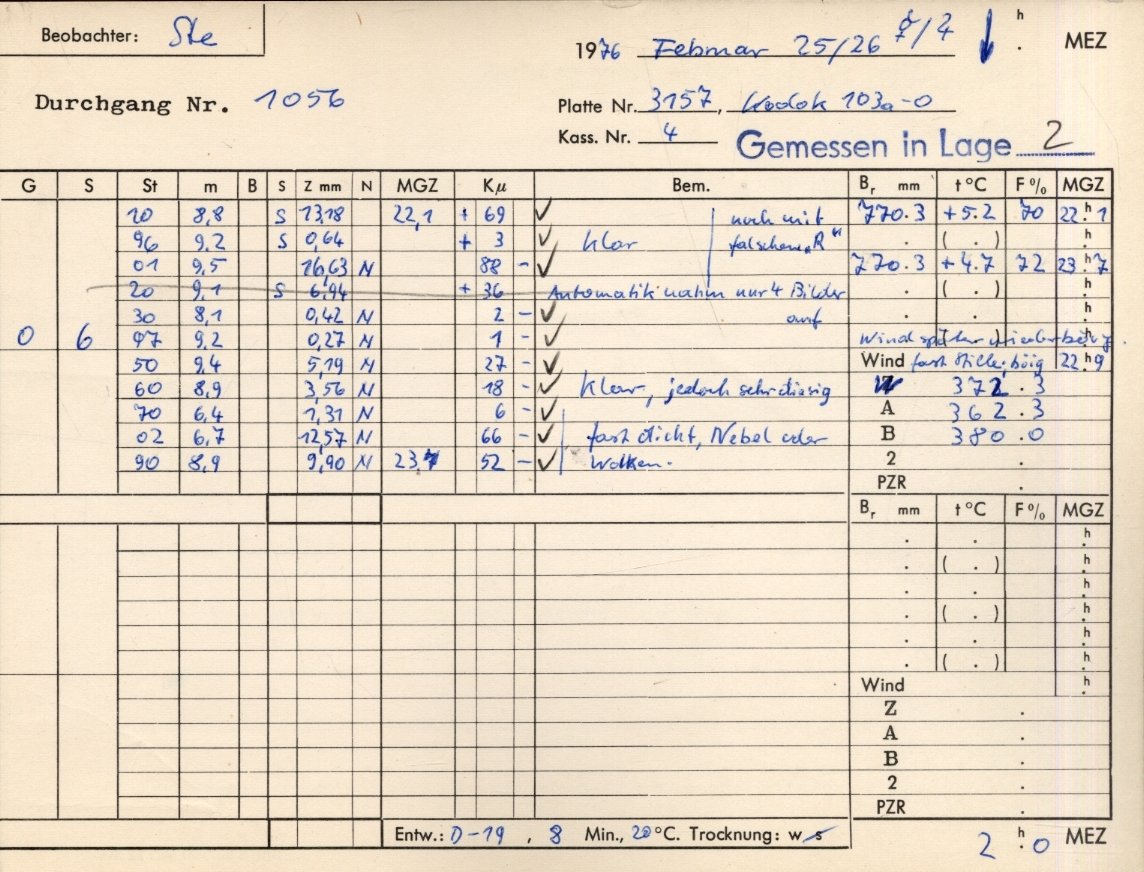 Beobachter: Ste
1976 Februar 25/26 ☿/♃ h . MEZ
Durchgang Nr. 1056
Platte Nr. 3157, Kodak 103a-O
Kass. Nr. 4
Gemessen in Lage 2
G S St m B S Z mm N MGZ Kμ Bem. Br mm t°C F% MGZ
10 8,8 S 13,18 22,1 + 69 ✓ noch mit 770.3 +5.2 70 22h.1
96 9,2 S 0,64 + 3 ✓ klar falschem „R" . ( . ) h.
01 9,5 16,63 N 88 - ✓ 770.3 +4.7 72 23h.7
20 9,1 S 6,94 + 36 Automatik nahm nur 4 Bilder . ( . ) h.
30 8,1 0,42 N 2 - ✓ auf h.
0 6 97 9,2 0,27 N 1 - ✓ Wind später
50 9,4 5,19 N 27 - ✓ Wind fast stille, böig 22h.9
60 8,9 3,56 N 18 - ✓ klar, jedoch sehr diesig 372.3
70 6,4 1,31 N 6 - ✓ A 362.3
02 6,7 12,57 N 66 - ✓ fast dicht, Nebel oder B 380.0
90 8,9 9,90 N 23,7 52 - ✓ Wolken. 2 .
PZR .
Br mm t°C F% MGZ
. . h.
. ( . ) h.
. . h.
. ( . ) h.
. . h.
. ( . ) h.
Wind h.
Z .
A .
B .
2 .
PZR .
Entw.: D-19, 8 Min., 20°C. Trocknung: w s
2 h. 0 MEZ